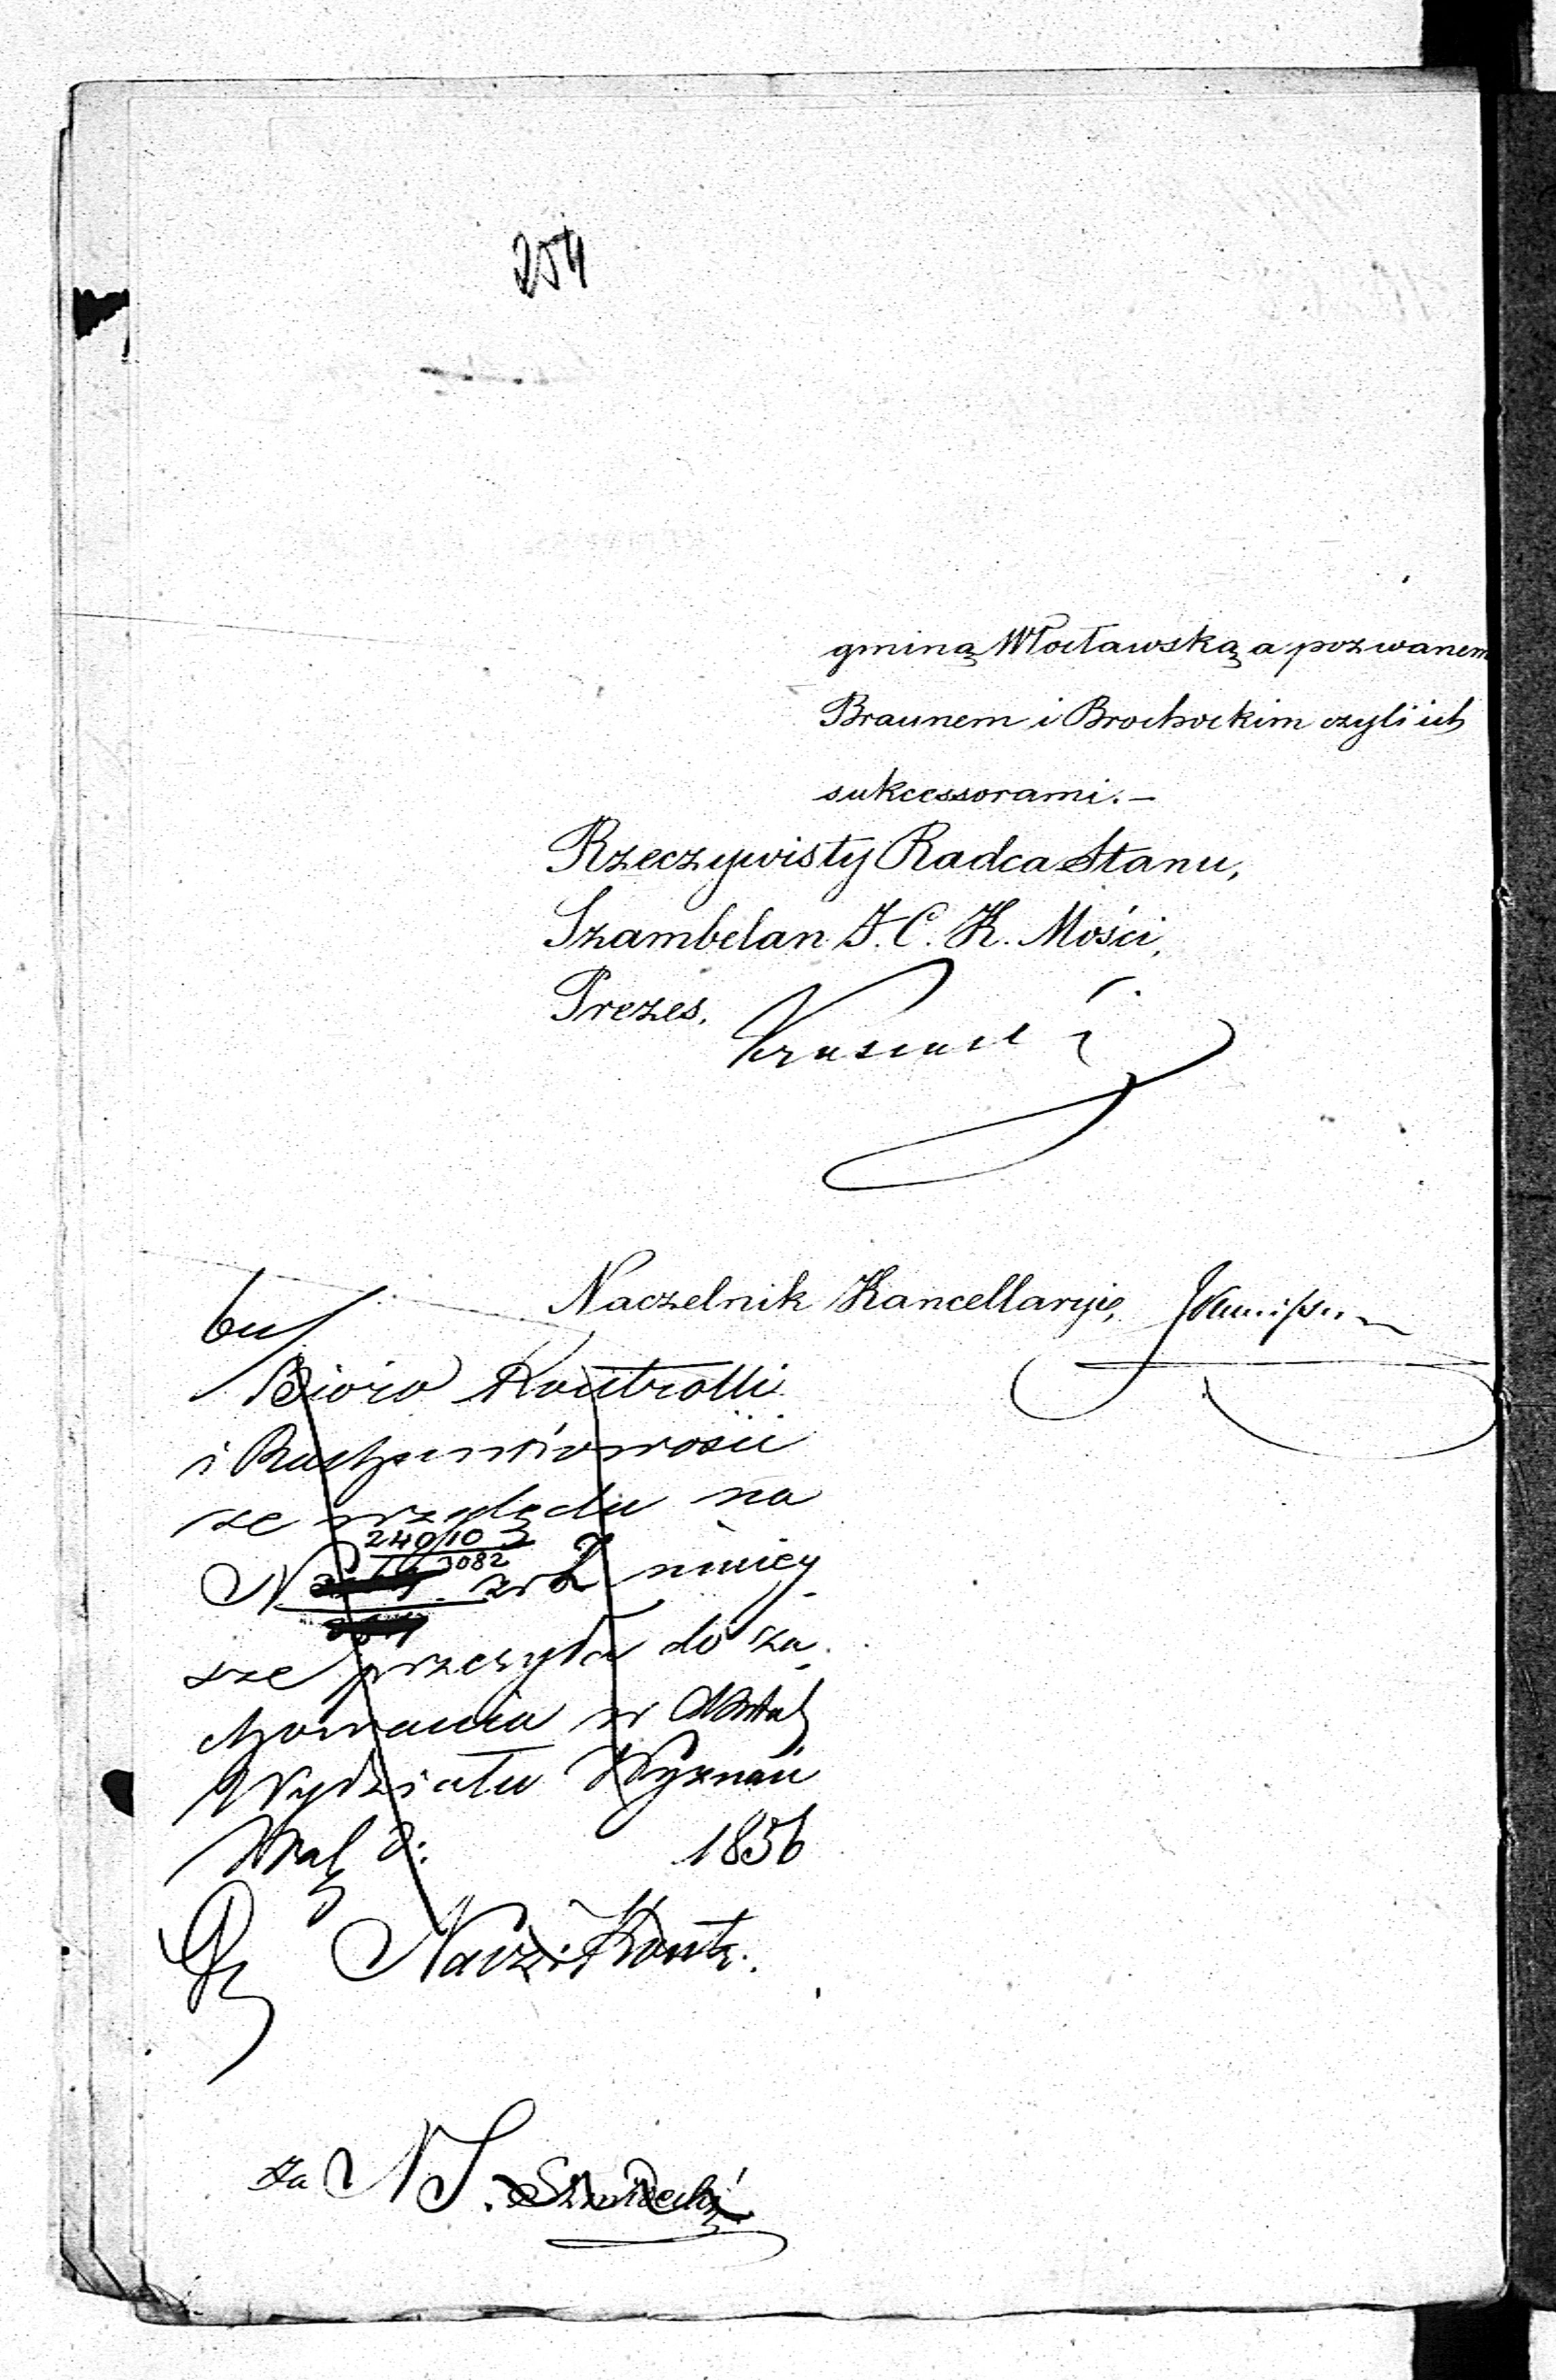 254
gminą Włocławską a pozwanem
Braunem i Brochockim czyli ich
sukcessorami.–
Rzeczywisty Radca Stanu,
Szambelan J. C. K. Mości,
Prezes.
Naczelnik Kancellaryi,
Bióro Kontrolli
i Rachunkowości
ze względu na
N 240/10 3082 niniey
sze przesyła do za
chowania w Aktach
Wydziału Wyznań
d: 1856
Nacz: Kontr.
za N S.